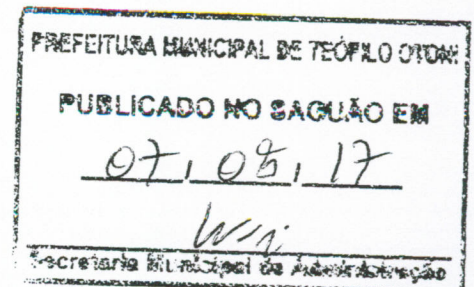 PREFEITURA MUNICIPAL DE TEÓFILO OTONI
PUBLICADO NO SAGUÃO EM
07, 08, 17
Secretaria Municipal de Administração